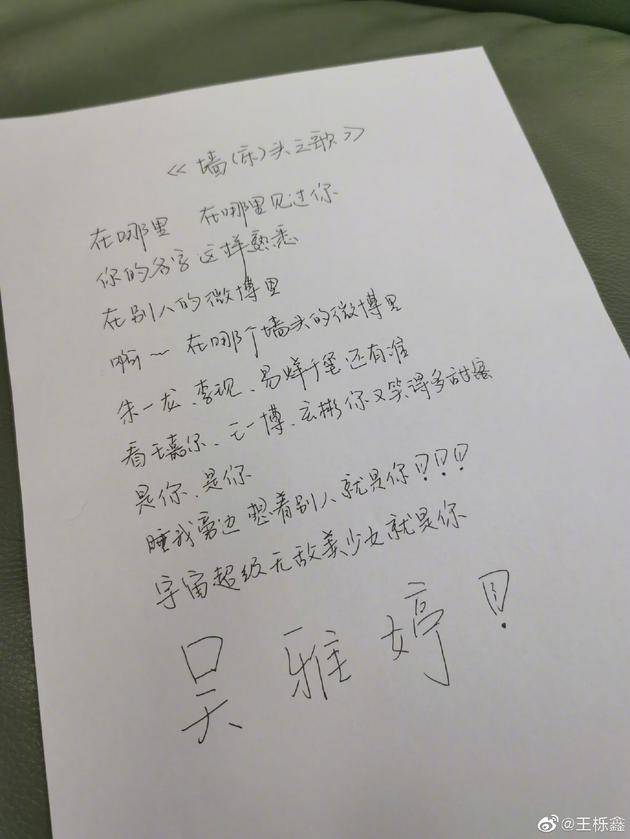 《墙(床)头之歌》
在哪里 在哪里见过你
你的名字这样熟悉
在别人的微博里
啊～在哪个墙头的微博里
朱一龙、李现、易烊千玺还有谁
看王嘉尔、王一博、玄彬你又笑得多甜蜜
是你、是你
睡我旁边想着别人就是你!!!
宇宙超级无敌美少女就是你
吴雅婷!
@王栎鑫